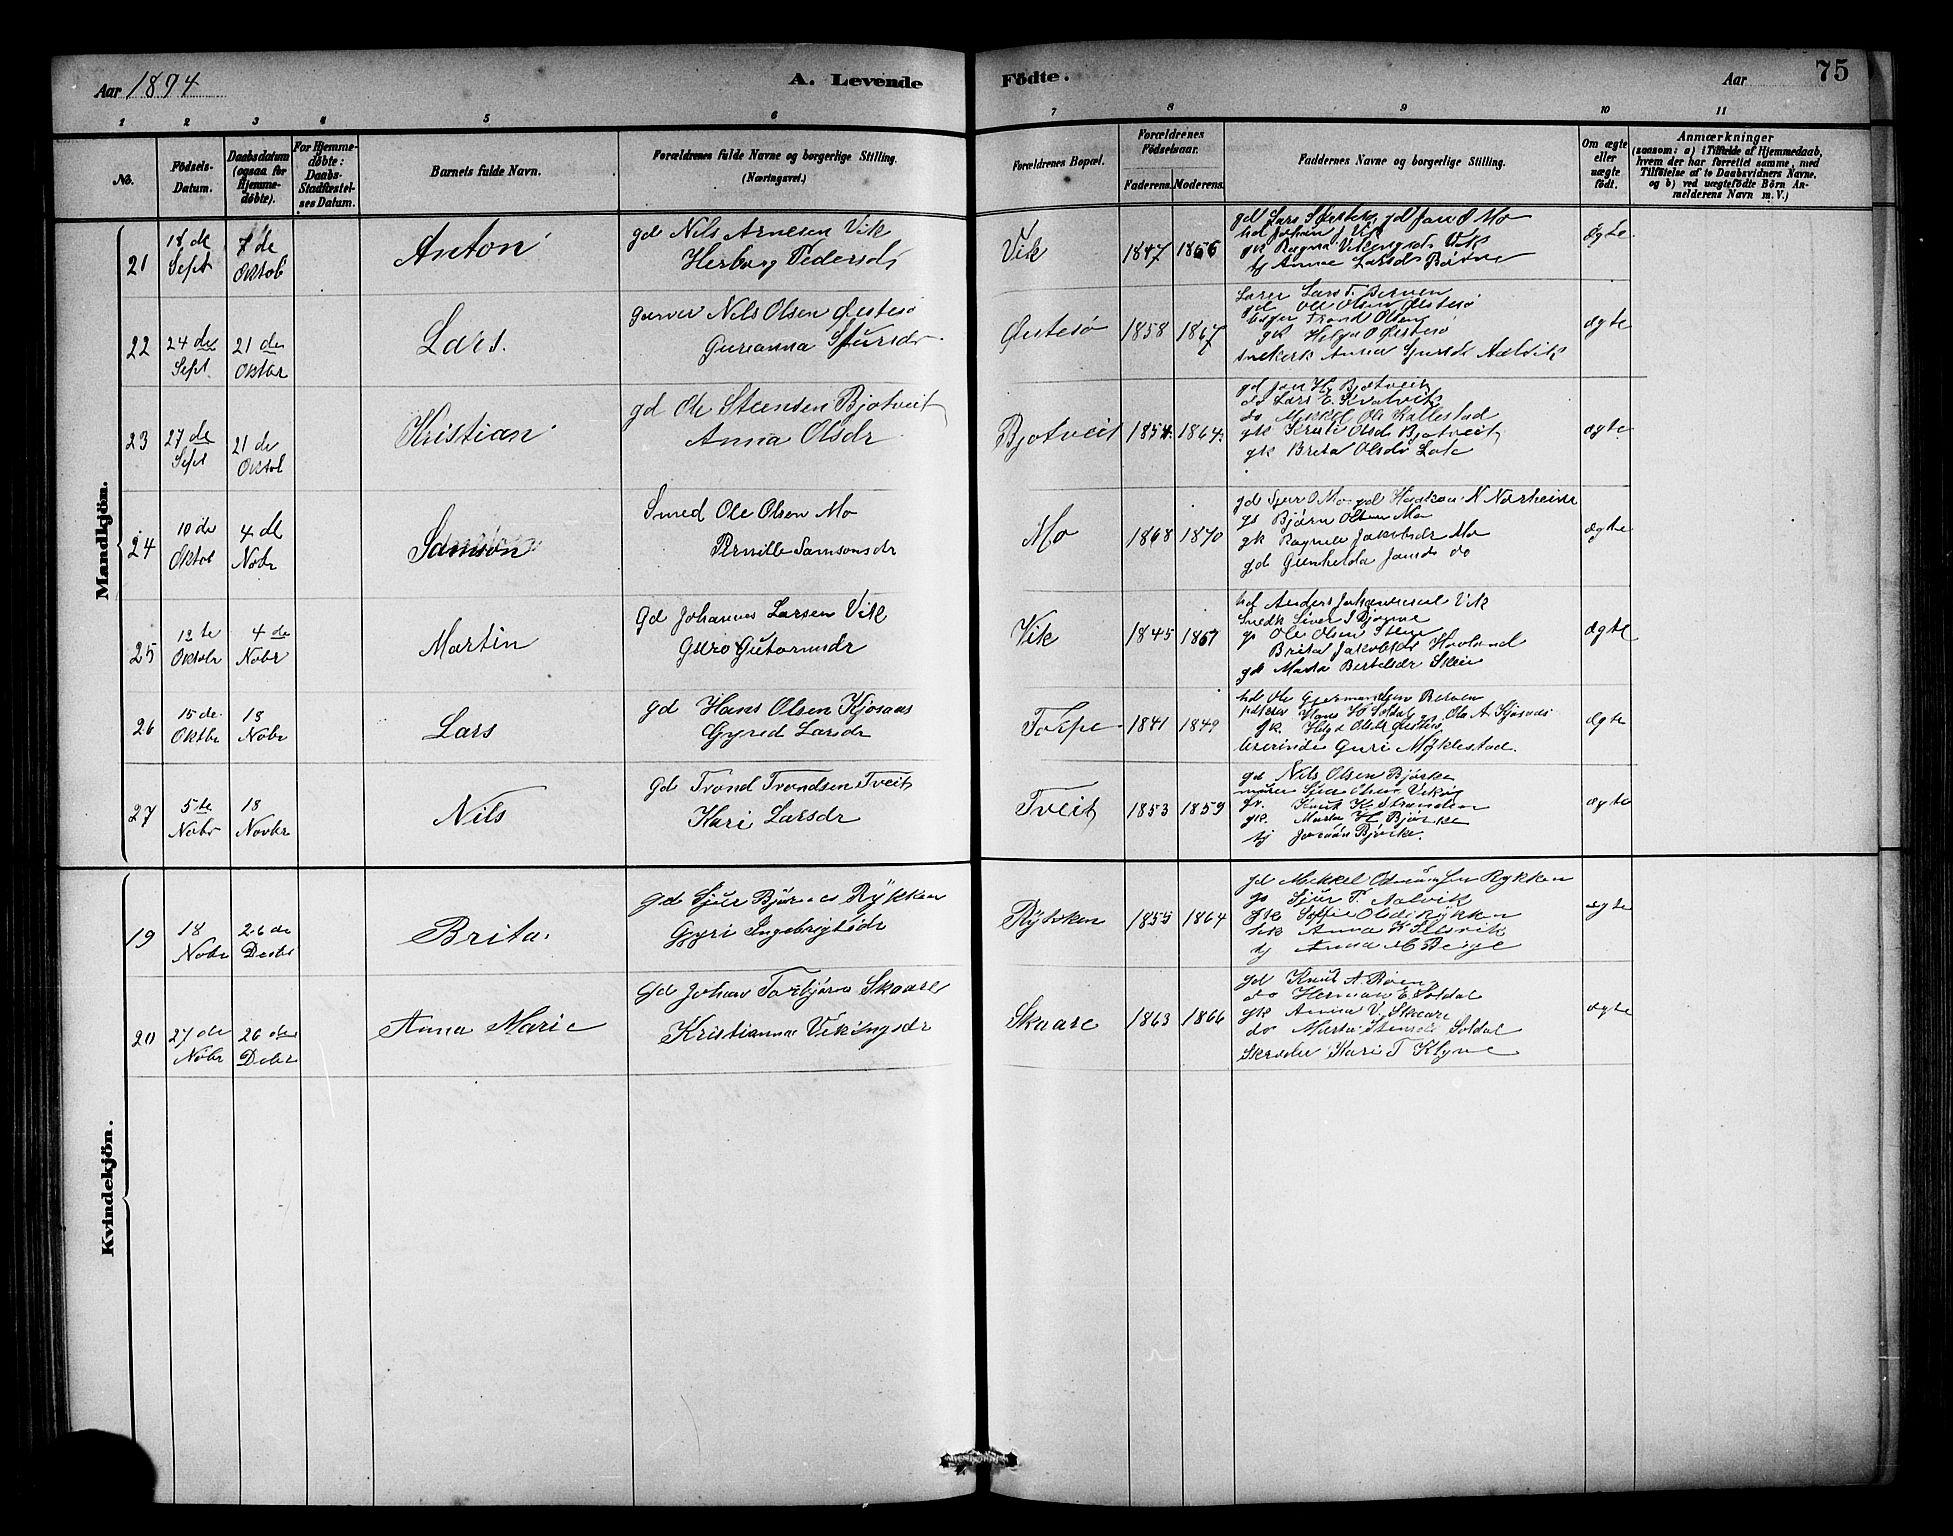 Aar 1894 A. Levende Födte. Aar 75
1 2 3 4 5 6 7 8 9 10 11
No.
Födsels-Datum.
Daabsdatum (ogsaa for Hjemmedøbte).
For Hjemmedøbte: Daabs-Stadfæstelses Datum.
Barnets fulde Navn.
Forældrenes fulde Navne og borgerlige Stilling.
(Næringsvei.)
Forældrenes Bopæl.
Forældrenes Födselsaar.
Faderens. Moderens.
Faddernes Navne og borgerlige Stilling.
Om ægte eller uægte født.
Anmærkninger
(saasom: a) i Tilfælde af Hjemmedaab, hvem der har forrettet samme, med Tilføielse af to Daabsvidners Navne, og b) ved uægtefødte Börn Anmelderens Navn m.V.)
Mandkjön.
21 18 de Sept 7 de Oktob Anton gd Nils Arnesen Vik
Herborg Pedersdr
Vik 1847 1856
gd Lars Øistesø, gd Jan O Mo
hd Johan J. Vik
gk Ragna Vikingsdr Vik
tj Anna Larsdr
ægte
22 24 de Sept 21 de Oktbr Lars. garver Nils Olsen Øistesø
Gurianna Sjursdr
Øistesø 1858 1867
Lærer Lars T. Berven
gd Ole Olsen Øistesø
Trond Olsen
gk Helga O Øistesø
snekerk Anna Sjursdr Aalvik
ægte
23 27 de Sept 21 de Oktob Kristian gd Ole Steensen Bjotveit
Anna Olsdr
Bjotveit 1854 1864
gd Jan H. Bjotveit
do Lars E. Kvalvik
do Mikkel Ols Kallestad
gk Olsdr Bjotveit
gk Brita Olsdr Lote
ægte
24 10 de Oktob 4 de Nobr Samson Smed Ole Olsen Mo
Pernille Samsonsdr
Mo 1868 1870
gd Sjur O Mo, gd Haakon N Norheim
gs Bjørn Olsen Mo
gk Ragnele Jakobsdr Mo
gd Gunhilda Jansdr do
ægte
25 12 te Oktobr 4 de Nobr Martin Gd Johannes Larsen Vik
Guro Gutormsdr
Vik 1845 1857
hd Anders Johannesen Vik
Snedk Siver S Bjørne
gs Ole Olsen Stein
Brita Jakobsdr Haaland
gd Marta Bertelsdr
ægte
26 15 de Oktbr 18 Nobr Lars gd Hans Olsen Kjosaas
Gyrid Larsdr
Torpe 1841 1849
hd Ole Berven
Hans H Soldal, Ola A Kjosaas
gk. Helga Olsdr Øistesø
lærerinde Guri Myklestad.
ægte
27 5 te Nobr 18 Novbr Nils Gd Trond Trondsen Tveit
Kari Larsdr
Tveit 1853 1859
gd Nils Olsen Bjørke
Olsen Vikøy
Knut H. Strømmen
gk. Marta H. Bjørke
tj Bjørke.
ægte
Kvindekjön.
19 18 Nobr 26 de Desbr Brita. gd Sjur Rykken
Gyri Ingebrigtsdr
Rykken 1855 1864
gd Mikkel Rykken
gs Sjur T. Aalvik
gk Soffie Olsdr Rykken
Anna K
tj Anna M Berge
ægte
20 27 de Nobr 26 de Debr Anna Marie Gd Johan Torbjørn Skaare
Kristianna Vikingsdr
Skaare 1863 1866
gd Knut A. Røen
do Herman E. Soldal
gk Anna V. Skaare
do Marta Soldal
Kari T Klyve
ægte